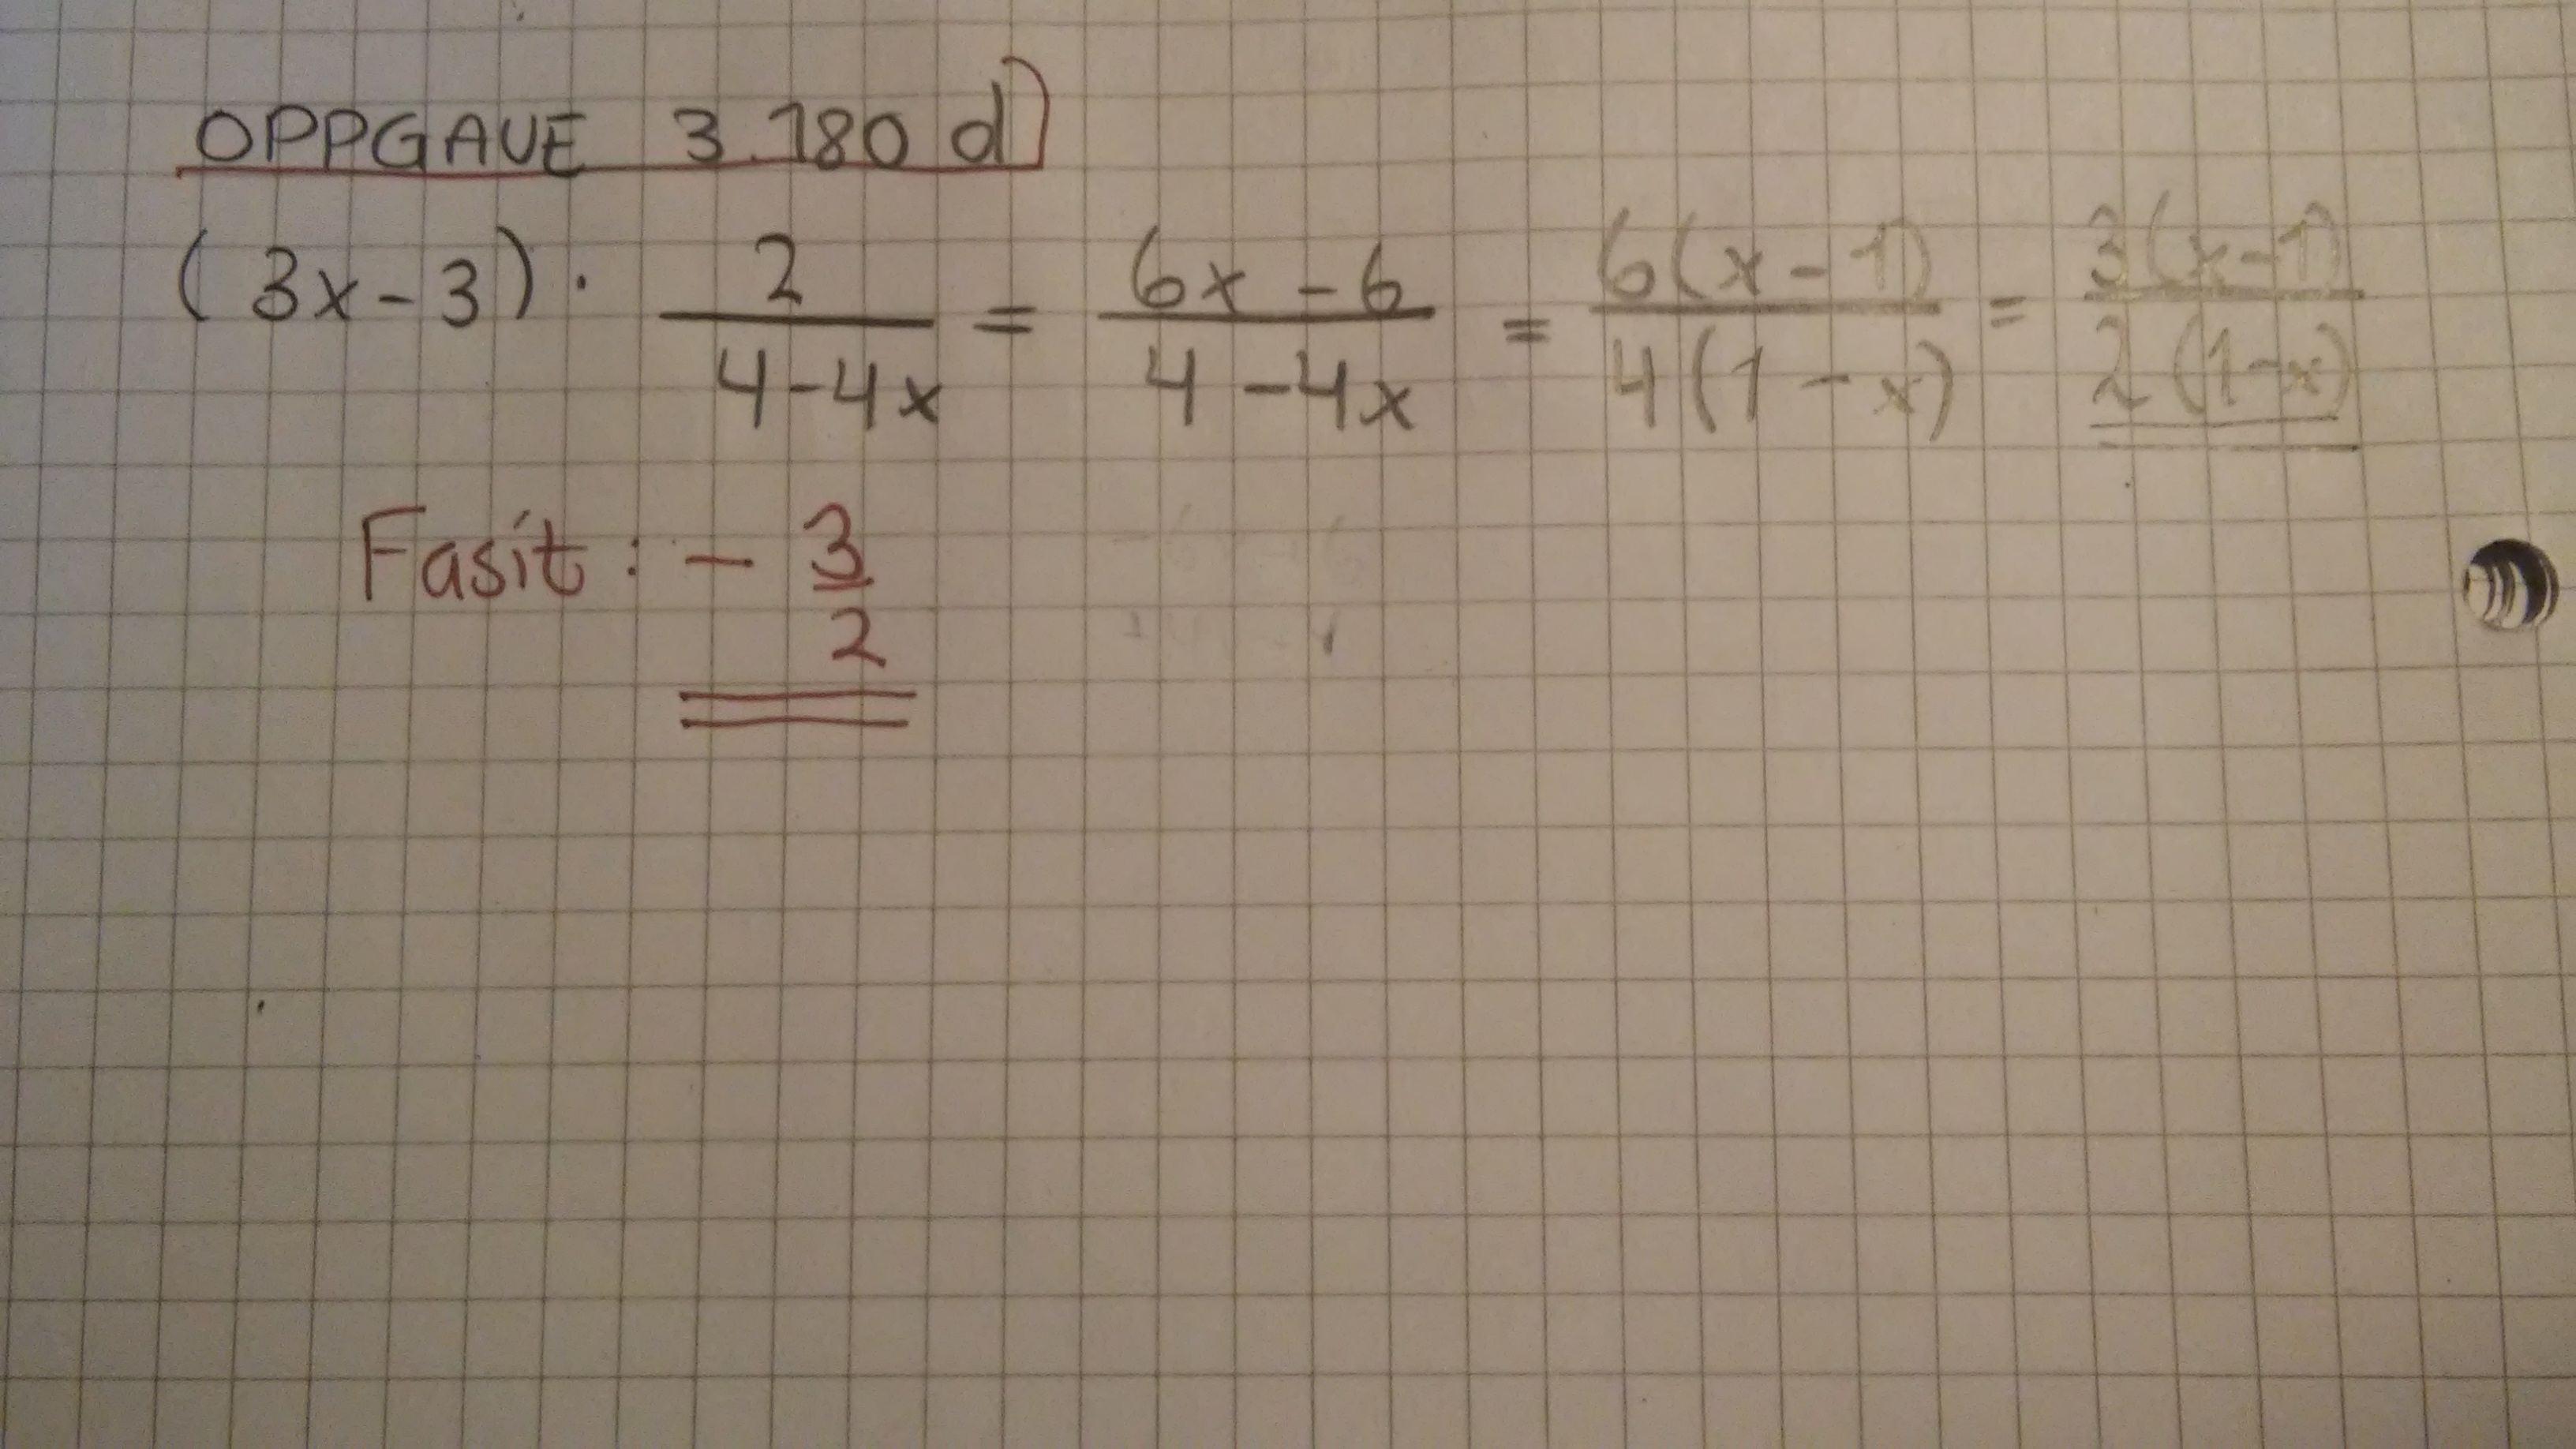 OPPGAVE 3.180 d)
(3x-3) · 2/(4-4x) = (6x-6)/(4-4x) = 6(x-1)/4(1-x) = 3(x-1)/2(1-x)
Fasit: - 3/2